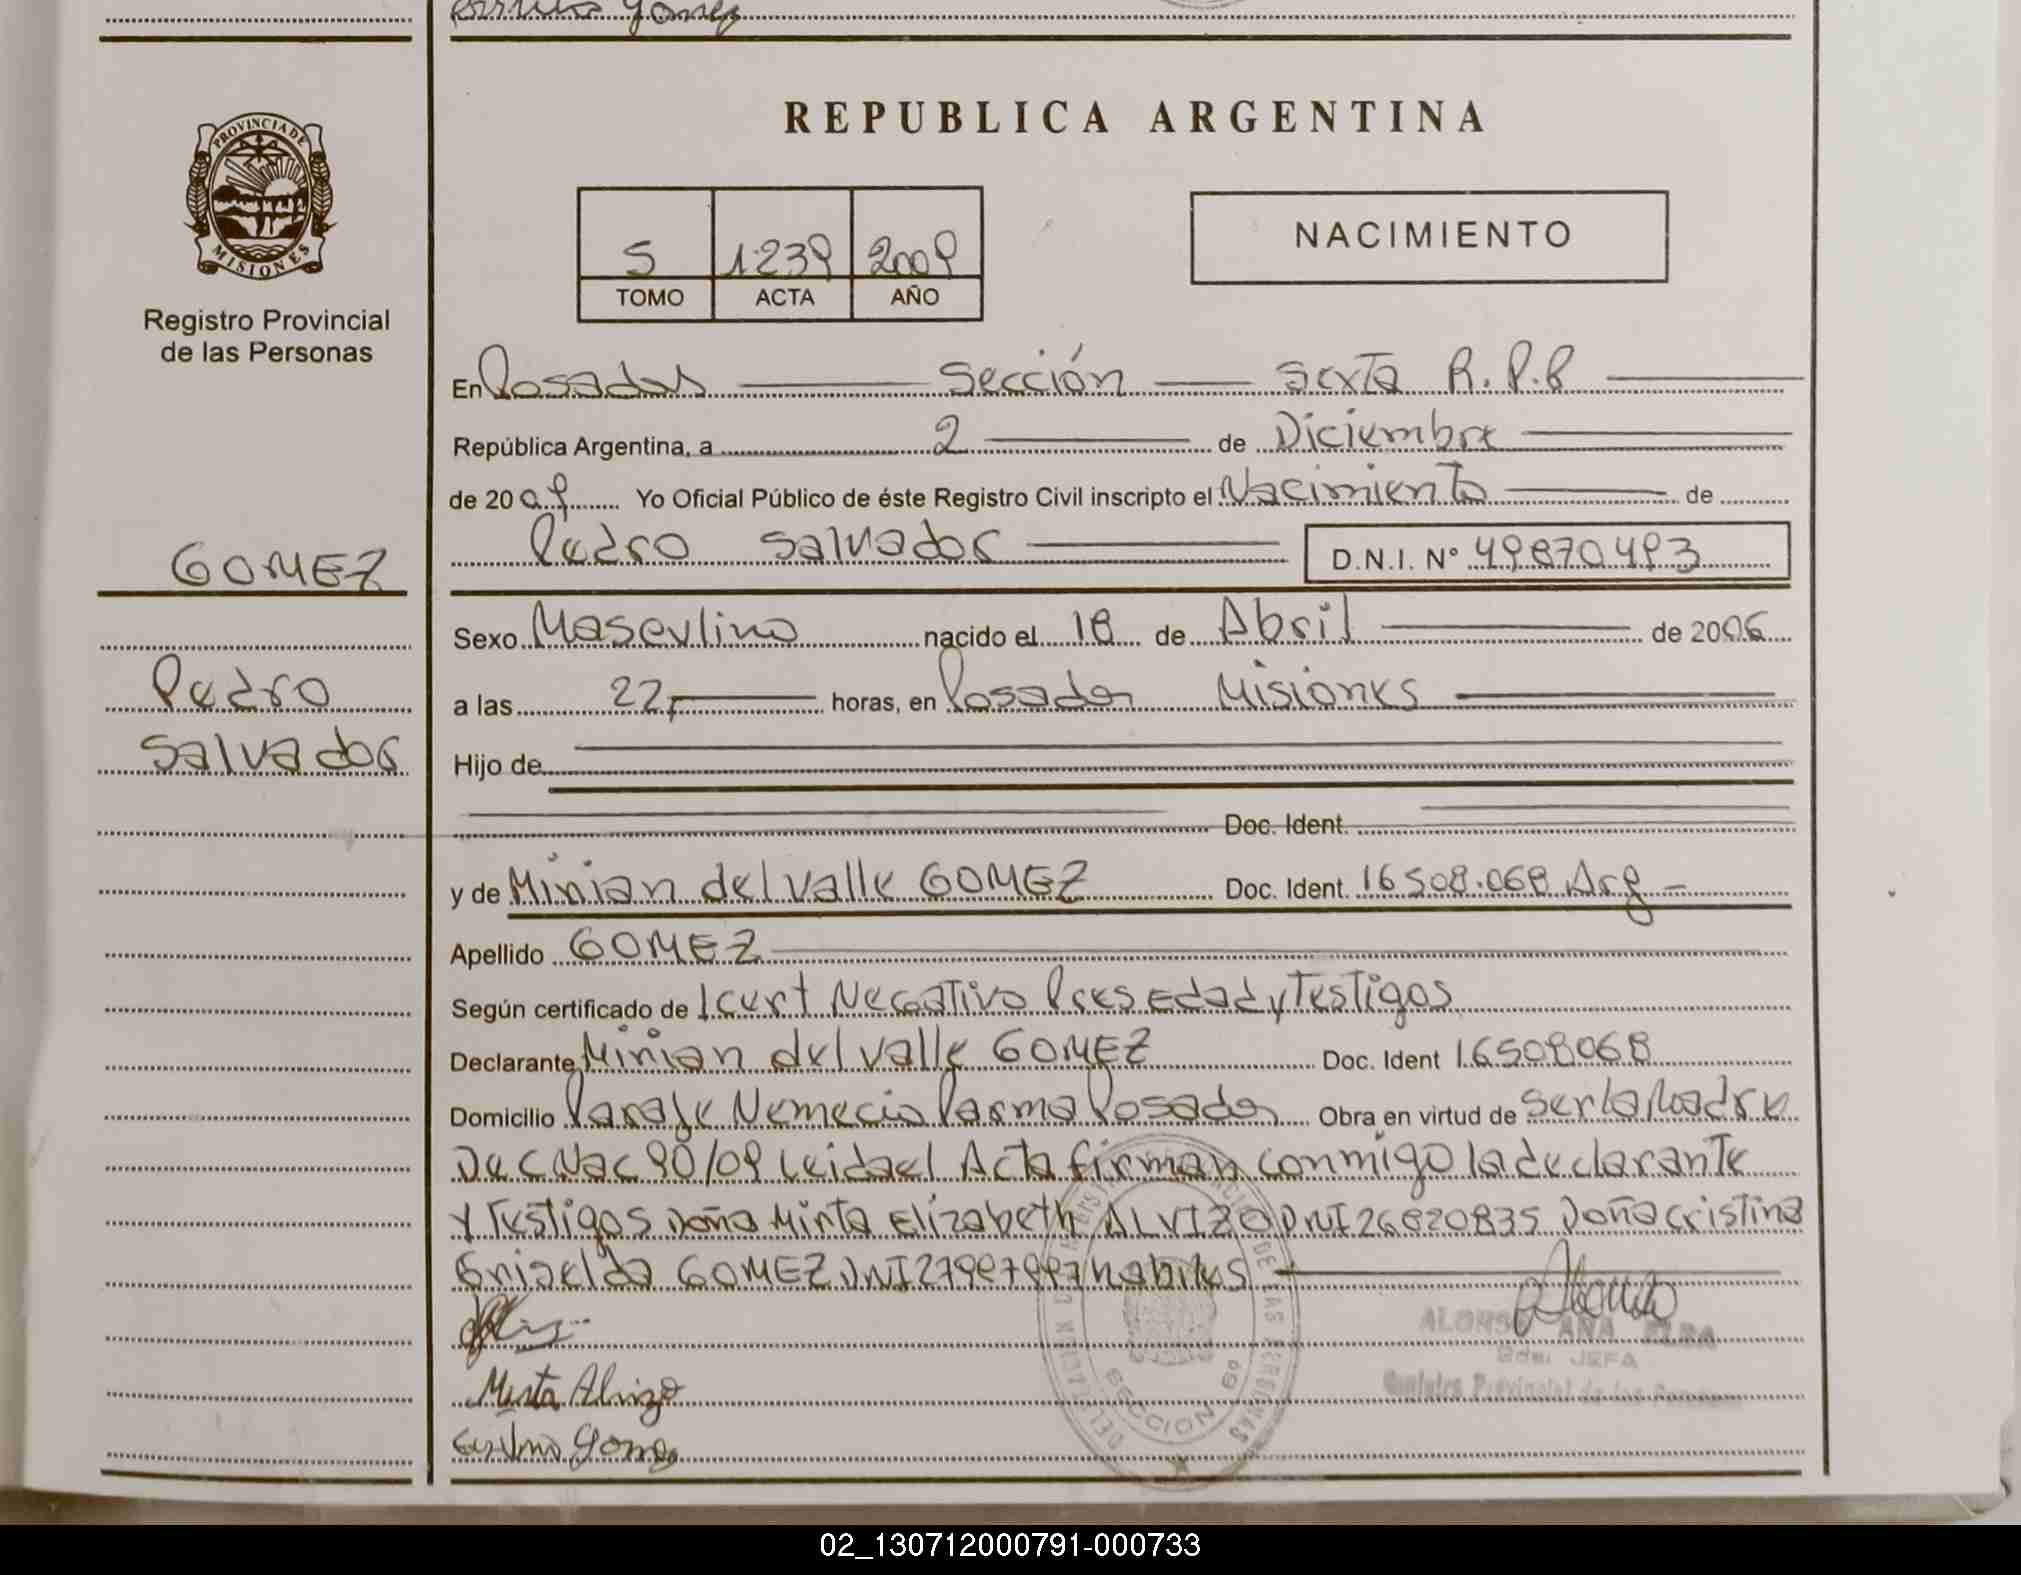 Gomez
PROVINCIA DE
MISIONES
Registro Provincial
de las Personas
REPUBLICA ARGENTINA
5 1239 2009
TOMO ACTA AÑO
NACIMIENTO
En Posadas Sección Sexta R.P.P
República Argentina, a 2 de Diciembre
de 2009 Yo Oficial Público de éste Registro Civil inscripto el Nacimiento de
GOMEZ
Pedro Salvador D.N.I. Nº 49870493
Sexo Masculino nacido el 18 de Abril de 2006
Pedro
a las 22 horas, en Posadas Misiones
Salvador
Hijo de
Doc. Ident.
y de Miriam del valle GOMEZ Doc. Ident. 16508.068 Arg
Apellido GOMEZ
Según certificado de 1 cert Negativo Pres Edad y Testigos
Declarante Miriam del valle GOMEZ Doc. Ident 16508068
Domicilio Paraje Nemecio Parma Posadas Obra en virtud de ser la Madre
Dec Nac 90/09 Leida el Acta firman conmigo la declarante
y Testigos Doña Mirta Elizabeth ALVIZO DNI 26820835 Doña Cristina
Griselda GOMEZ DNI habiles
Mirta Alvizo
Gomez
ALONSO ANA ELSA
JEFA
Registro Provincial de las Personas
SECCION 6º
DE LAS PERSONAS
02_130712000791-000733